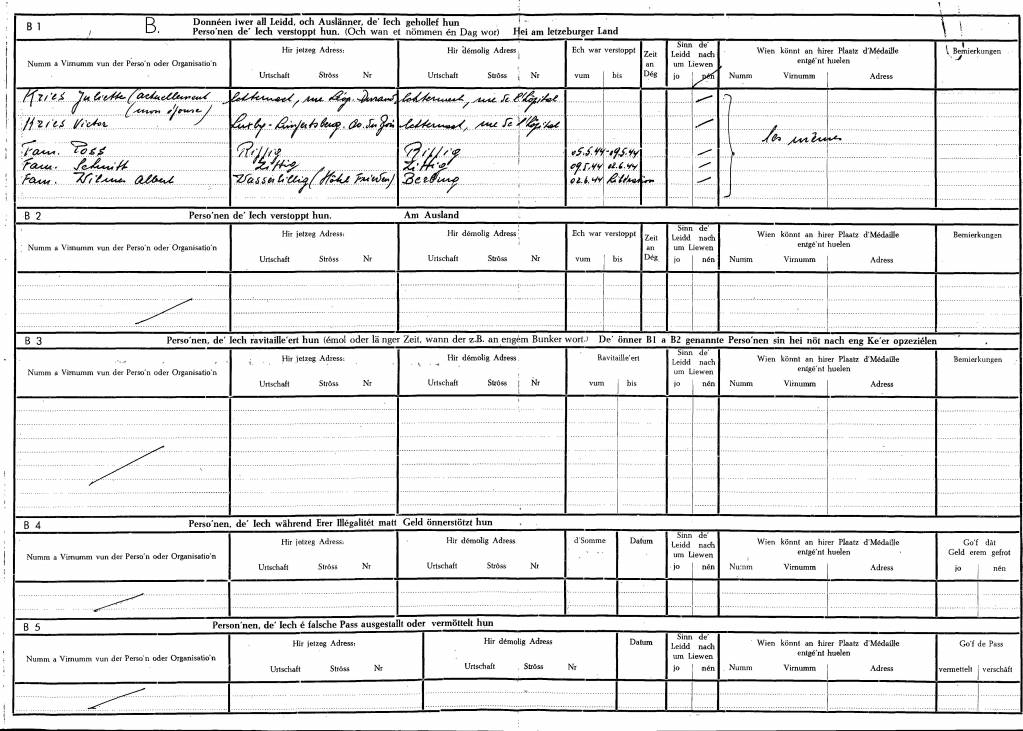 B 1 B. Donnéen iwer all Leidd, och Auslänner, de' Iech gehollef hun
Perso'nen de' Iech verstoppt hun. (Och wan et nömmen én Dag wor) Hei am letzeburger Land
Numm a Virnumm vun der Perso'n oder Organisatio'n Hir jetzeg Adress: Hir démolig Adress Ech war verstoppt Zeit an Dég Sinn de' Leidd nach um Liewen Wien könnt an hirer Plaatz d'Médaille entgé'nt huelen Bemierkungen
Urtschaft Ströss Nr Urtschaft Ströss Nr vum bis jo nén Numm Virnumm Adress
Kries Juliette (actuellement Echternach, rue Durand Echternach, rue de l'hôpital —
(mon épouse)
Kries Victor Echternach, rue de l'hôpital — les mêmes
Fam. Toss Riffig Riffig 05.5.44-09.5.44 —
Fam. Schmitt Zittig Zittig 09.5.44 02.6.44 —
Fam. Wilmes Albert Wasserbillig (Hôtel Frieden) Berburg 02.6.44 Libération —
B 2 Perso'nen de' Iech verstoppt hun. Am Ausland
Numm a Virnumm vun der Perso'n oder Organisatio'n Hir jetzeg Adress: Hir démolig Adress Ech war verstoppt Zeit an Dég Sinn de' Leidd nach um Liewen Wien könnt an hirer Plaatz d'Médaille entgé'nt huelen Bemierkungen
Urtschaft Ströss Nr Urtschaft Ströss Nr vum bis jo nén Numm Virnumm Adress
B 3 Perso'nen, de' Iech ravitaille'ert hun (émol oder länger Zeit, wann der z.B. an engém Bunker wort.) De' önner B1 a B2 genannte Perso'nen sin hei nöt nach eng Ke'er opzeziélen
Numm a Virnumm vun der Perso'n oder Organisatio'n Hir jetzeg Adress: Hir démolig Adress Ravitaille'ert Sinn de' Leidd nach um Liewen Wien könnt an hirer Plaatz d'Médaille entgé'nt huelen Bemierkungen
Urtschaft Ströss Nr Urtschaft Ströss Nr vum bis jo nén Numm Virnumm Adress
B 4 Perso'nen, de' Iech während Erer Illégalitét matt Geld önnerstötzt hun
Numm a Virnumm vun der Perso'n oder Organisatio'n Hir jetzeg Adress: Hir démolig Adress d'Somme Datum Sinn de' Leidd nach um Liewen Wien könnt an hirer Plaatz d'Médaille entgé'nt huelen Go'f dât Geld erem gefrot
Urtschaft Ströss Nr Urtschaft Ströss Nr jo nén Numm Virnumm Adress jo nén
B 5 Person'nen, de' Iech é falsche Pass ausgestallt oder vermöttelt hun
Numm a Virnumm vun der Perso'n oder Organisatio'n Hir jetzeg Adress: Hir démolig Adress Datum Sinn de' Leidd nach um Liewen Wien könnt an hirer Plaatz d'Médaille entgé'nt huelen Go'f de Pass
Urtschaft Ströss Nr Urtschaft Ströss Nr jo nén Numm Virnumm Adress vermettelt verschäft